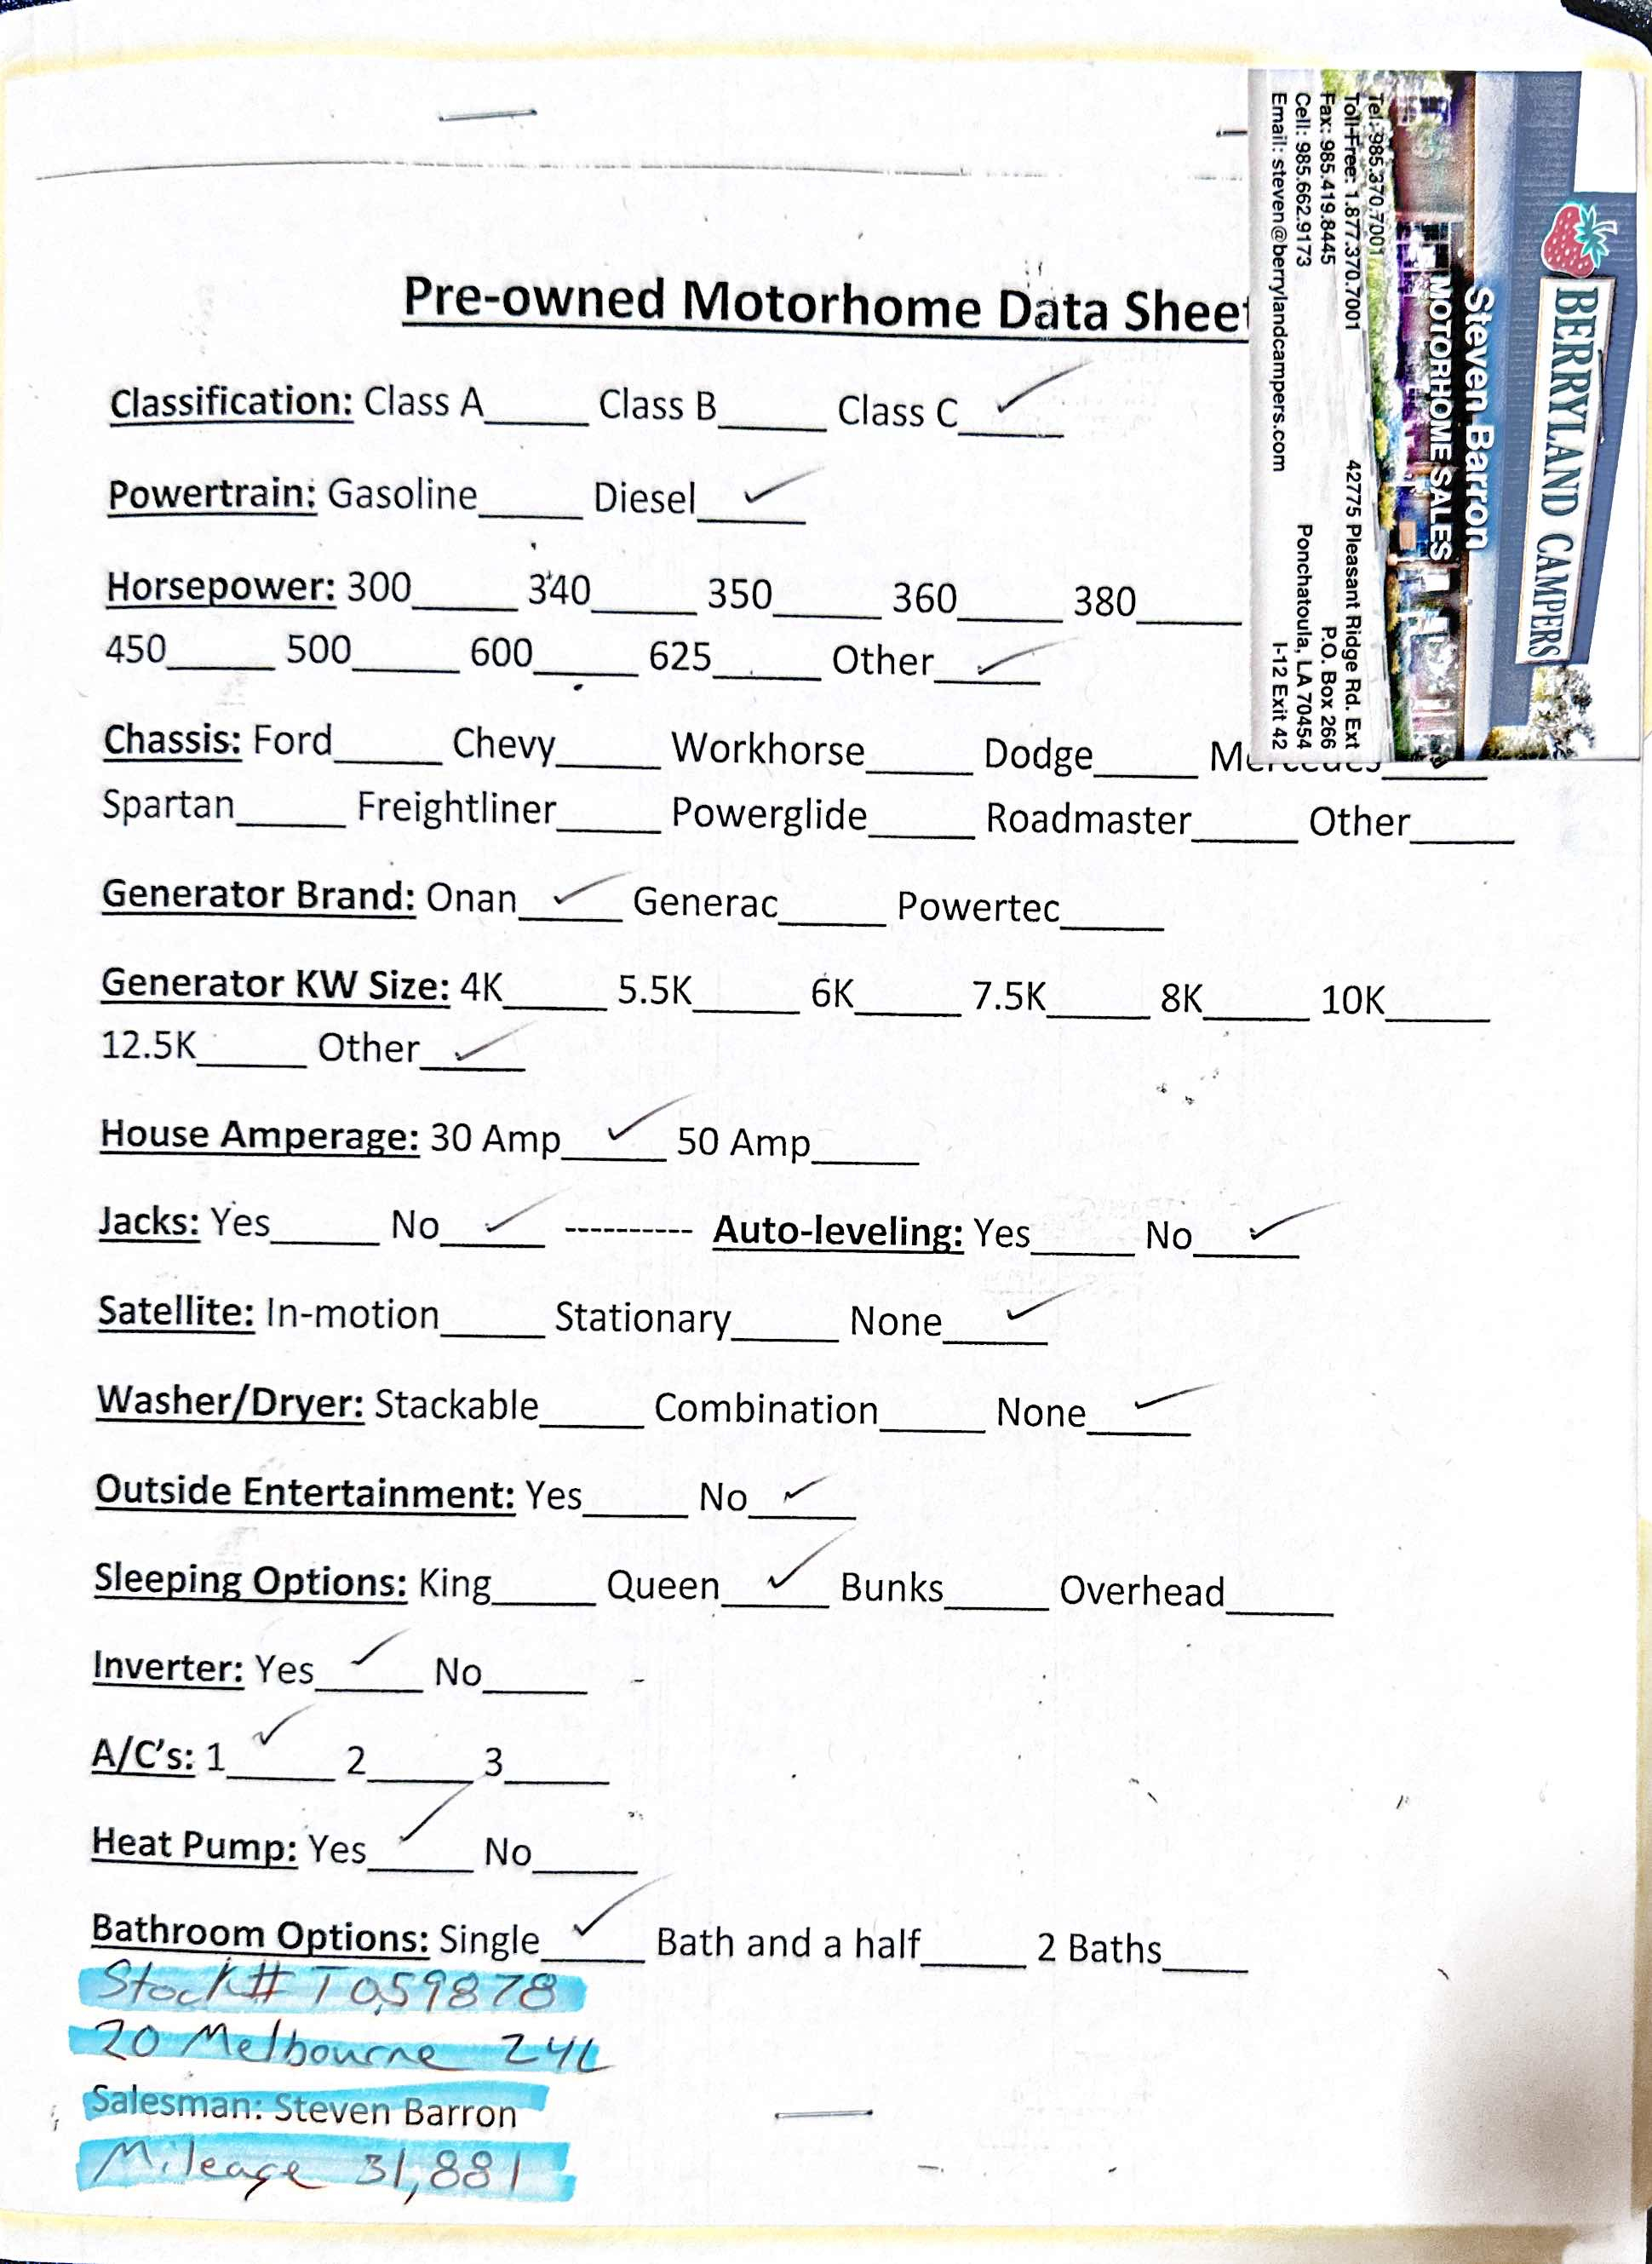 Pre-owned Motorhome Data Sheet
Classification: Class A_____ Class B_____ Class C__✓__
Powertrain: Gasoline_____ Diesel__✓__
Horsepower: 300_____ 340_____ 350_____ 360_____ 380_____
450_____ 500_____ 600_____ 625_____ Other__✓__
Chassis: Ford_____ Chevy_____ Workhorse_____ Dodge_____ Mercedes_____
Spartan_____ Freightliner_____ Powerglide_____ Roadmaster_____ Other_____
Generator Brand: Onan__✓__ Generac_____ Powertec_____
Generator KW Size: 4K_____ 5.5K_____ 6K_____ 7.5K_____ 8K_____ 10K_____
12.5K_____ Other__✓__
House Amperage: 30 Amp__✓__ 50 Amp_____
Jacks: Yes_____ No__✓__ ---------- Auto-leveling: Yes_____ No__✓__
Satellite: In-motion_____ Stationary_____ None__✓__
Washer/Dryer: Stackable_____ Combination_____ None__✓__
Outside Entertainment: Yes_____ No__✓__
Sleeping Options: King_____ Queen__✓__ Bunks_____ Overhead_____
Inverter: Yes__✓__ No_____
A/C's: 1__✓__ 2_____ 3_____
Heat Pump: Yes__✓__ No_____
Bathroom Options: Single__✓__ Bath and a half_____ 2 Baths____
Stock# T059878
20 Melbourne 24L
Salesman: Steven Barron
Mileage 31,881
BERRYLAND CAMPERS
Steven Barron
MOTORHOME SALES
Tel: 985.370.7001
Toll-Free: 1.877.370.7001 42775 Pleasant Ridge Rd. Ext
Fax: 985.419.8445 P.O. Box 266
Cell: 985.662.9173 Ponchatoula, LA 70454
Email: steven@berrylandcampers.com I-12 Exit 42